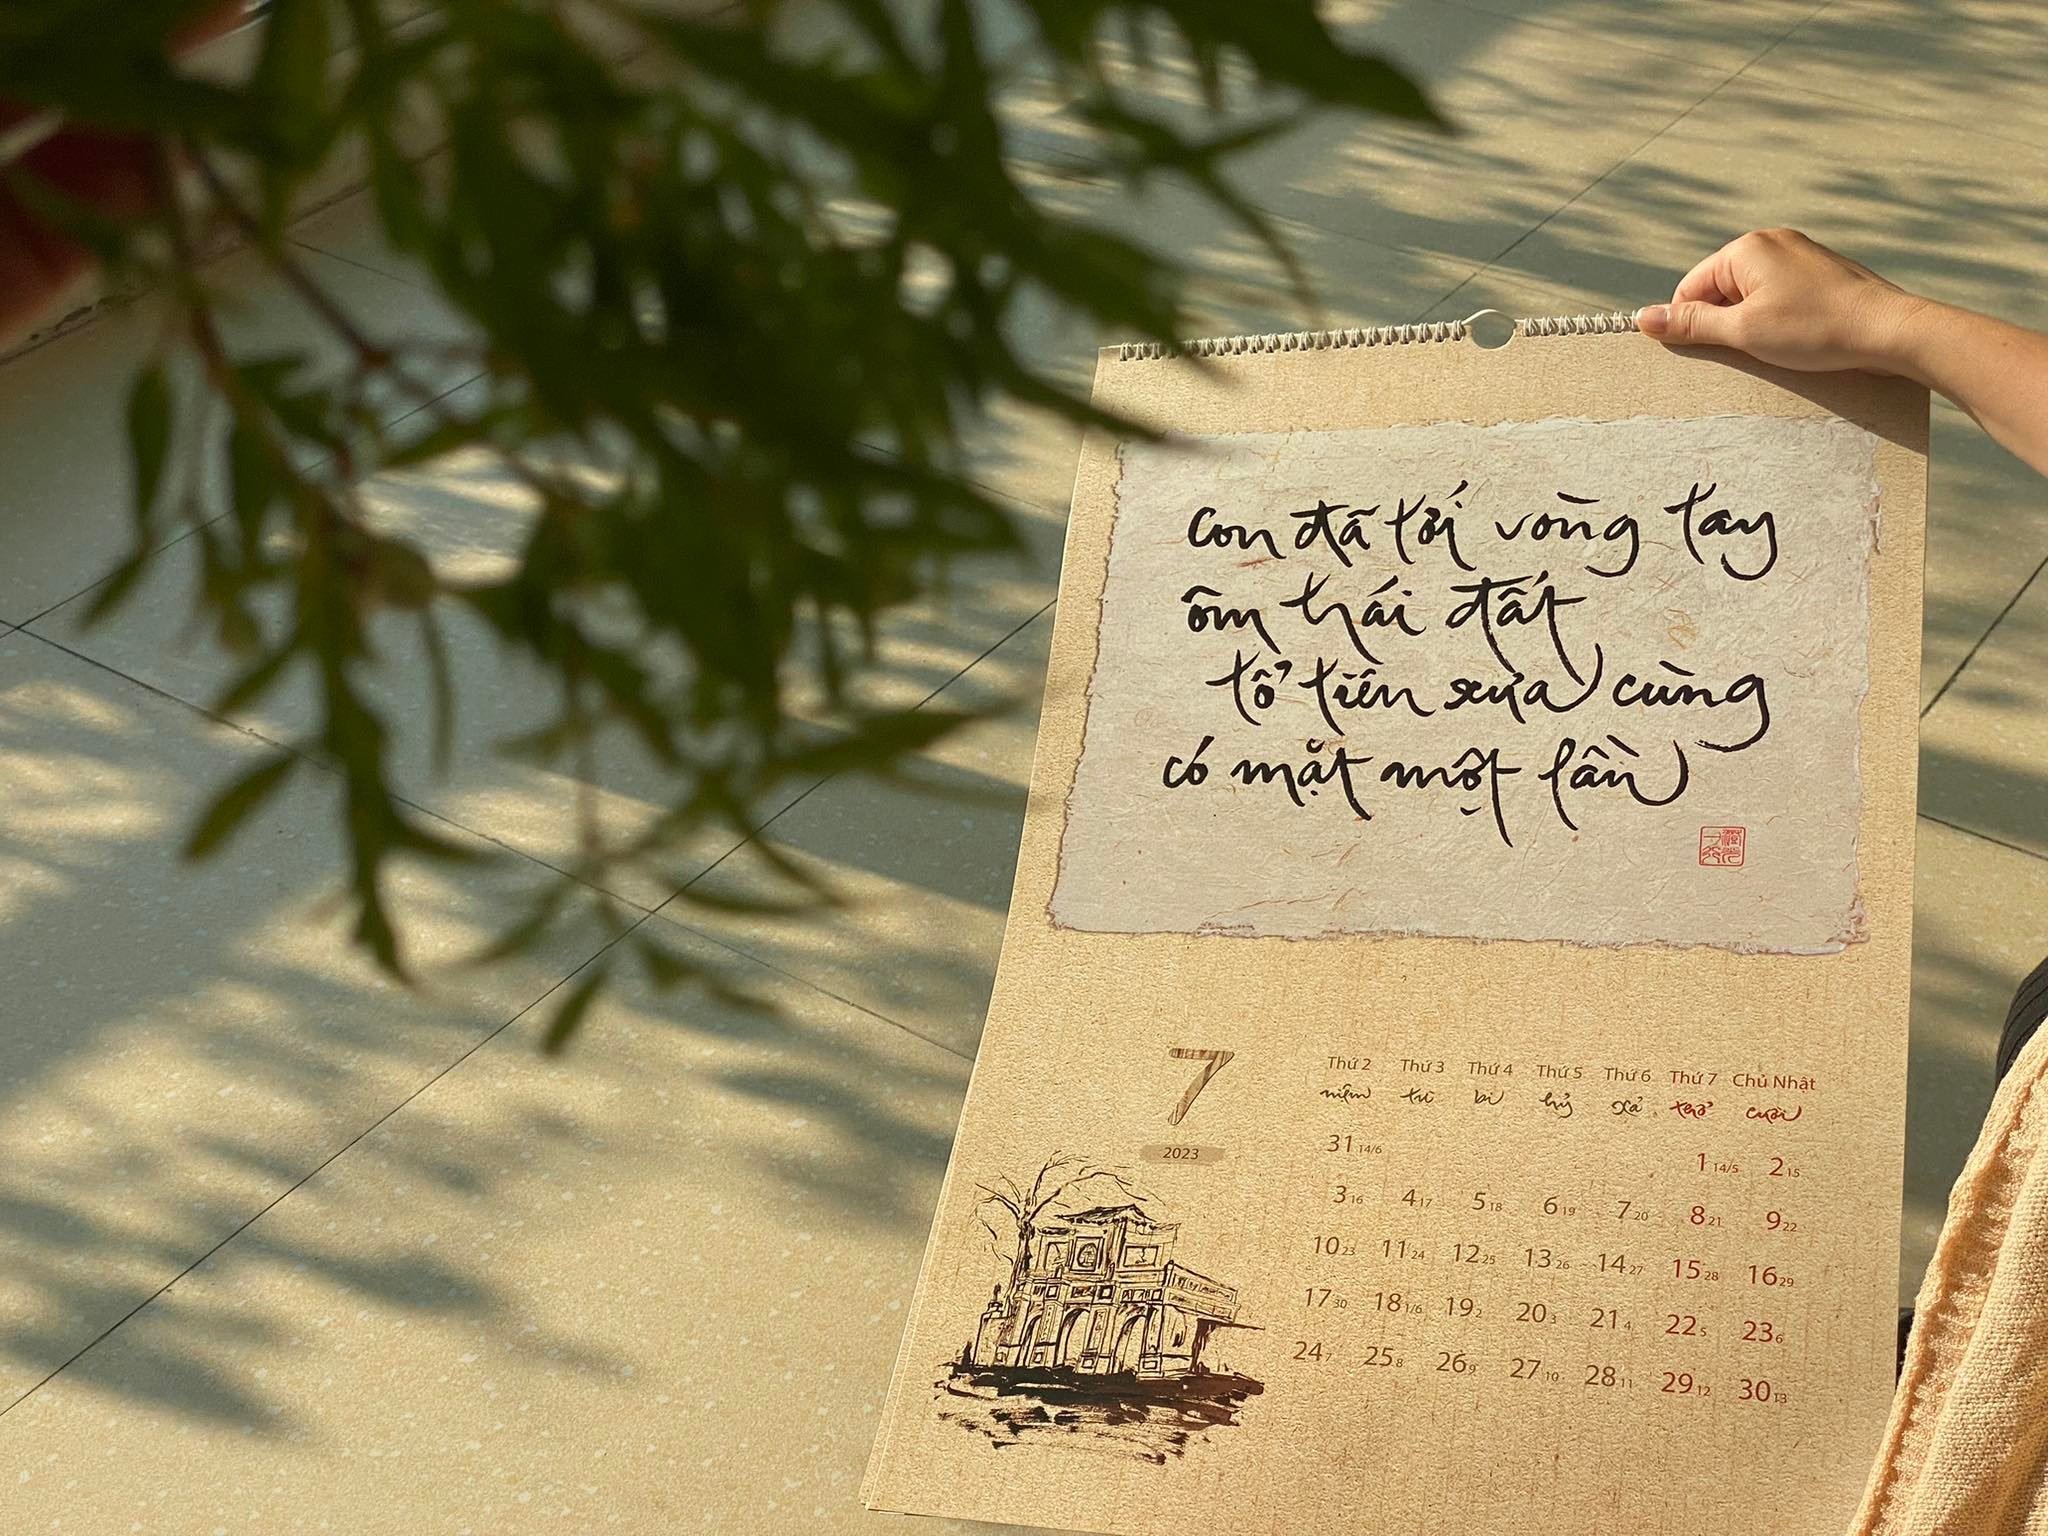 con đã tới vòng tay
ôm trái đất
tổ tiên xưa cùng
có mặt một lần
7
2023
Thứ 2 Thứ 3 Thứ 4 Thứ 5 Thứ 6 Thứ 7 Chủ Nhật
niệm từ bi hỷ xả thở cười
31 14/6 1 14/5 2 15
3 16 4 17 5 18 6 19 7 20 8 21 9 22
10 23 11 24 12 25 13 26 14 27 15 28 16 29
17 30 18 1/6 19 2 20 3 21 4 22 5 23 6
24 7 25 8 26 9 27 10 28 11 29 12 30 13